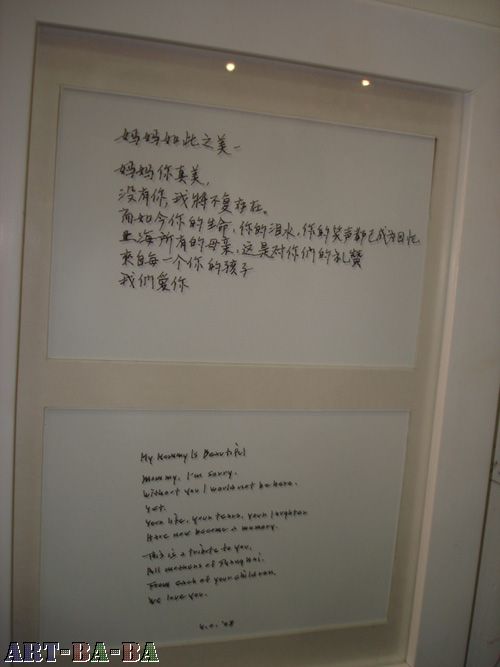 妈妈如此之美
妈妈你真美,
没有你,我將不复存在。
而如今你的生命,你的泪水,你的笑声都已成为回忆.
上海所有的母亲,这是对你们的礼赞
來自每一个你的孩子
我们爱你
My Mommy Is Beautiful
Mommy, I'm sorry.
Without you I would not be here.
Yet.
Your life, your tears, your laughter
Have now become a memory.
This is a tribute to you,
All mothers of Shanghai.
From each of your children.
We love you.
y.o. '08
ART-BA-BA